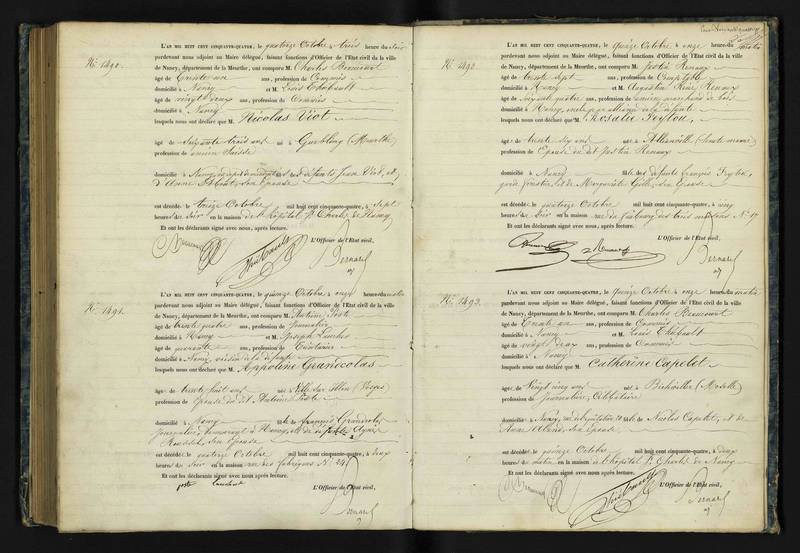 N° 1490.
L'AN MIL HUIT CENT CINQUANTE-QUATRE, le quatorze Octobre à trois heure du soir
pardevant nous adjoint au Maire délégué, faisant fonctions d'Officier de l'Etat civil de la ville
de Nancy, département de la Meurthe, ont comparu M. Charles
âgé de trente un ans, profession de Commis
domicilié à Nancy et M. Louis Thibault
âgé de vingt deux ans, profession de Commis
domicilié à Nancy
lesquels nous ont déclaré que M. Nicolas Viot
âgé de soixante trois ans né à (Meurthe)
profession de ancien
domicilié à Nancy, fils de défunts Jean Viot, et
d'Anne son épouse
est décédé le treize Octobre mil huit cent cinquante-quatre, à sept
heures du soir en la maison de l'hôpital St Charles de Nancy
Et ont les déclarants signé avec nous, après lecture.
L'Officier de l'Etat civil,
Thibault
Bernard
N° 1491.
L'AN MIL HUIT CENT CINQUANTE-QUATRE, le quinze Octobre à onze heure du matin
pardevant nous adjoint au Maire délégué, faisant fonctions d'Officier de l'Etat civil de la ville
de Nancy, département de la Meurthe, ont comparu M. Antoine
âgé de trente quatre ans, profession de Journalier
domicilié à Nancy et M. Joseph
âgé de quarante ans, profession de
domicilié à Nancy, voisin de la défunte
lesquels nous ont déclaré que M. Appoline Grandcolas
âgée de trente huit ans née à Ville sur Illon (Vosges)
profession de épouse du dit Antoine
domiciliée à Nancy fille de françois Grandcolas
journalier, demeurant à Nancy, et de défunte Agnès
son épouse
est décédée le quatorze Octobre mil huit cent cinquante-quatre, à deux
heures du soir en la maison rue des fabriques N° 24
Et ont les déclarants signé avec nous, après lecture.
L'Officier de l'Etat civil,
Bernard
N° 1492.
L'AN MIL HUIT CENT CINQUANTE-QUATRE, le quinze Octobre à onze heure du matin
pardevant nous adjoint au Maire délégué, faisant fonctions d'Officier de l'Etat civil de la ville
de Nancy, département de la Meurthe, ont comparu M. Renaux
âgé de trente sept ans, profession de Comptable
domicilié à Nancy et M. Augustin Renaux
âgé de soixante quatre ans, profession de ancien marchand de bois
domicilié à Nancy, de la défunte
lesquels nous ont déclaré que M. Rosalie
âgée de trente six ans née à
profession de Epouse du dit Renaux
domiciliée à Nancy fille de défunts françois
et de Marguerite son épouse
est décédée le quatorze Octobre mil huit cent cinquante-quatre, à cinq
heures du soir en la maison rue du faubourg des trois maisons N° 17
Et ont les déclarants signé avec nous, après lecture.
L'Officier de l'Etat civil,
Bernard
N° 1493.
L'AN MIL HUIT CENT CINQUANTE-QUATRE, le quinze Octobre à onze heure du matin
pardevant nous adjoint au Maire délégué, faisant fonctions d'Officier de l'Etat civil de la ville
de Nancy, département de la Meurthe, ont comparu M. Charles
âgé de trente un ans, profession de Commis
domicilié à Nancy et M. Louis Thibault
âgé de vingt deux ans, profession de Commis
domicilié à Nancy
lesquels nous ont déclaré que M. Catherine Capelot
âgée de vingt cinq ans née à (Moselle)
profession de journalière, Célibataire
domiciliée à Nancy, fille de Nicolas Capelot, et de
Anne son épouse
est décédée le quinze Octobre mil huit cent cinquante-quatre, à deux
heures du matin en la maison de l'hôpital St Charles de Nancy
Et ont les déclarants signé avec nous, après lecture.
L'Officier de l'Etat civil,
Thibault
Bernard